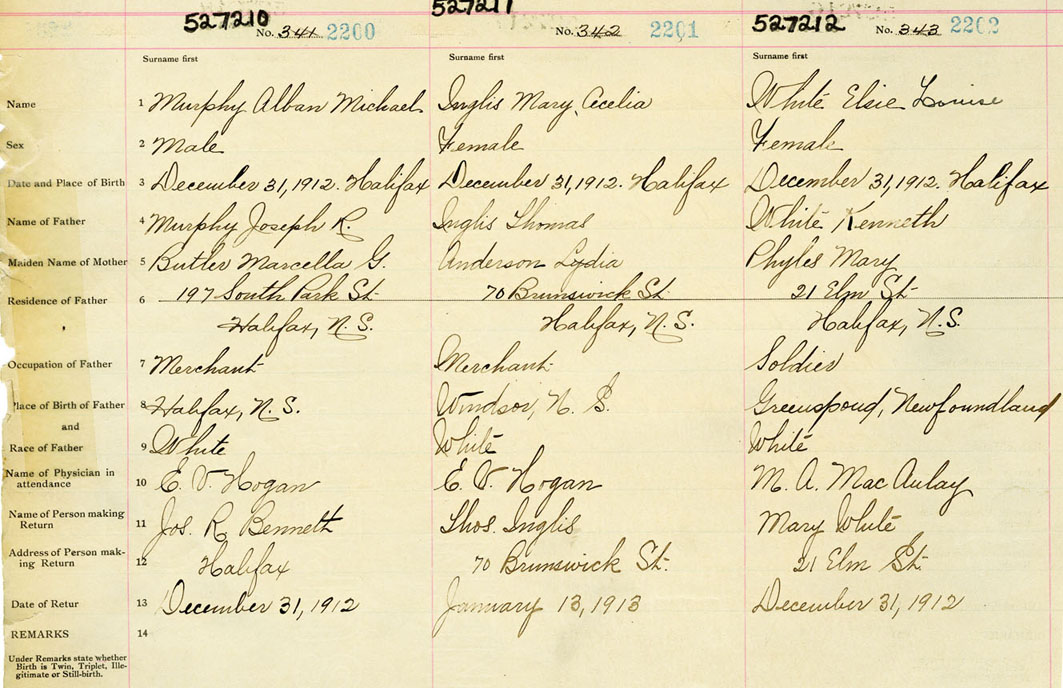 527210 527211 527212
No. 341 2200 No. 342 2201 No. 343 2202
Surname first Surname first Surname first
Name 1 Murphy Alban Michael Inglis Mary Cecelia White Elsie Louise
Sex 2 Male Female Female
Date and Place of Birth 3 December 31, 1912. Halifax December 31, 1912. Halifax December 31, 1912. Halifax
Name of Father 4 Murphy Joseph R. Inglis Thomas White Kenneth
Maiden Name of Mother 5 Butler Marcella G. Anderson Lydia Phyles Mary
Residence of Father 6 197 South Park St. 70 Brunswick St. 21 Elm St.
Halifax, N.S. Halifax, N.S. Halifax, N.S.
Occupation of Father 7 Merchant Merchant Soldier
Place of Birth of Father 8 Halifax, N.S. Windsor, N.S. Greenspond, Newfoundland
and
Race of Father 9 White White White
Name of Physician in
attendance 10 E. V. Hogan E. V. Hogan M. A. MacAulay
Name of Person making
Return 11 Jos. R. Bennett Thos. Inglis Mary White
Address of Person mak-
ing Return 12 Halifax 70 Brunswick St. 21 Elm St.
Date of Retur 13 December 31, 1912 January 13, 1913 December 31, 1912
REMARKS 14
Under Remarks state whether
Birth is Twin, Triplet, Ille-
gitimate or Still-birth.